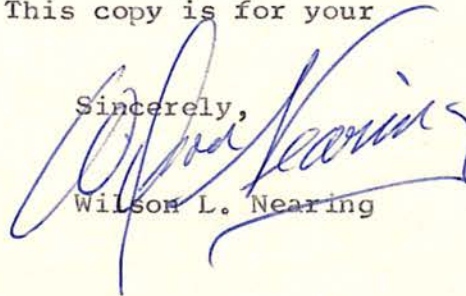 This copy is for your
Sincerely,
Wilson Nearing
Wilson L. Nearing